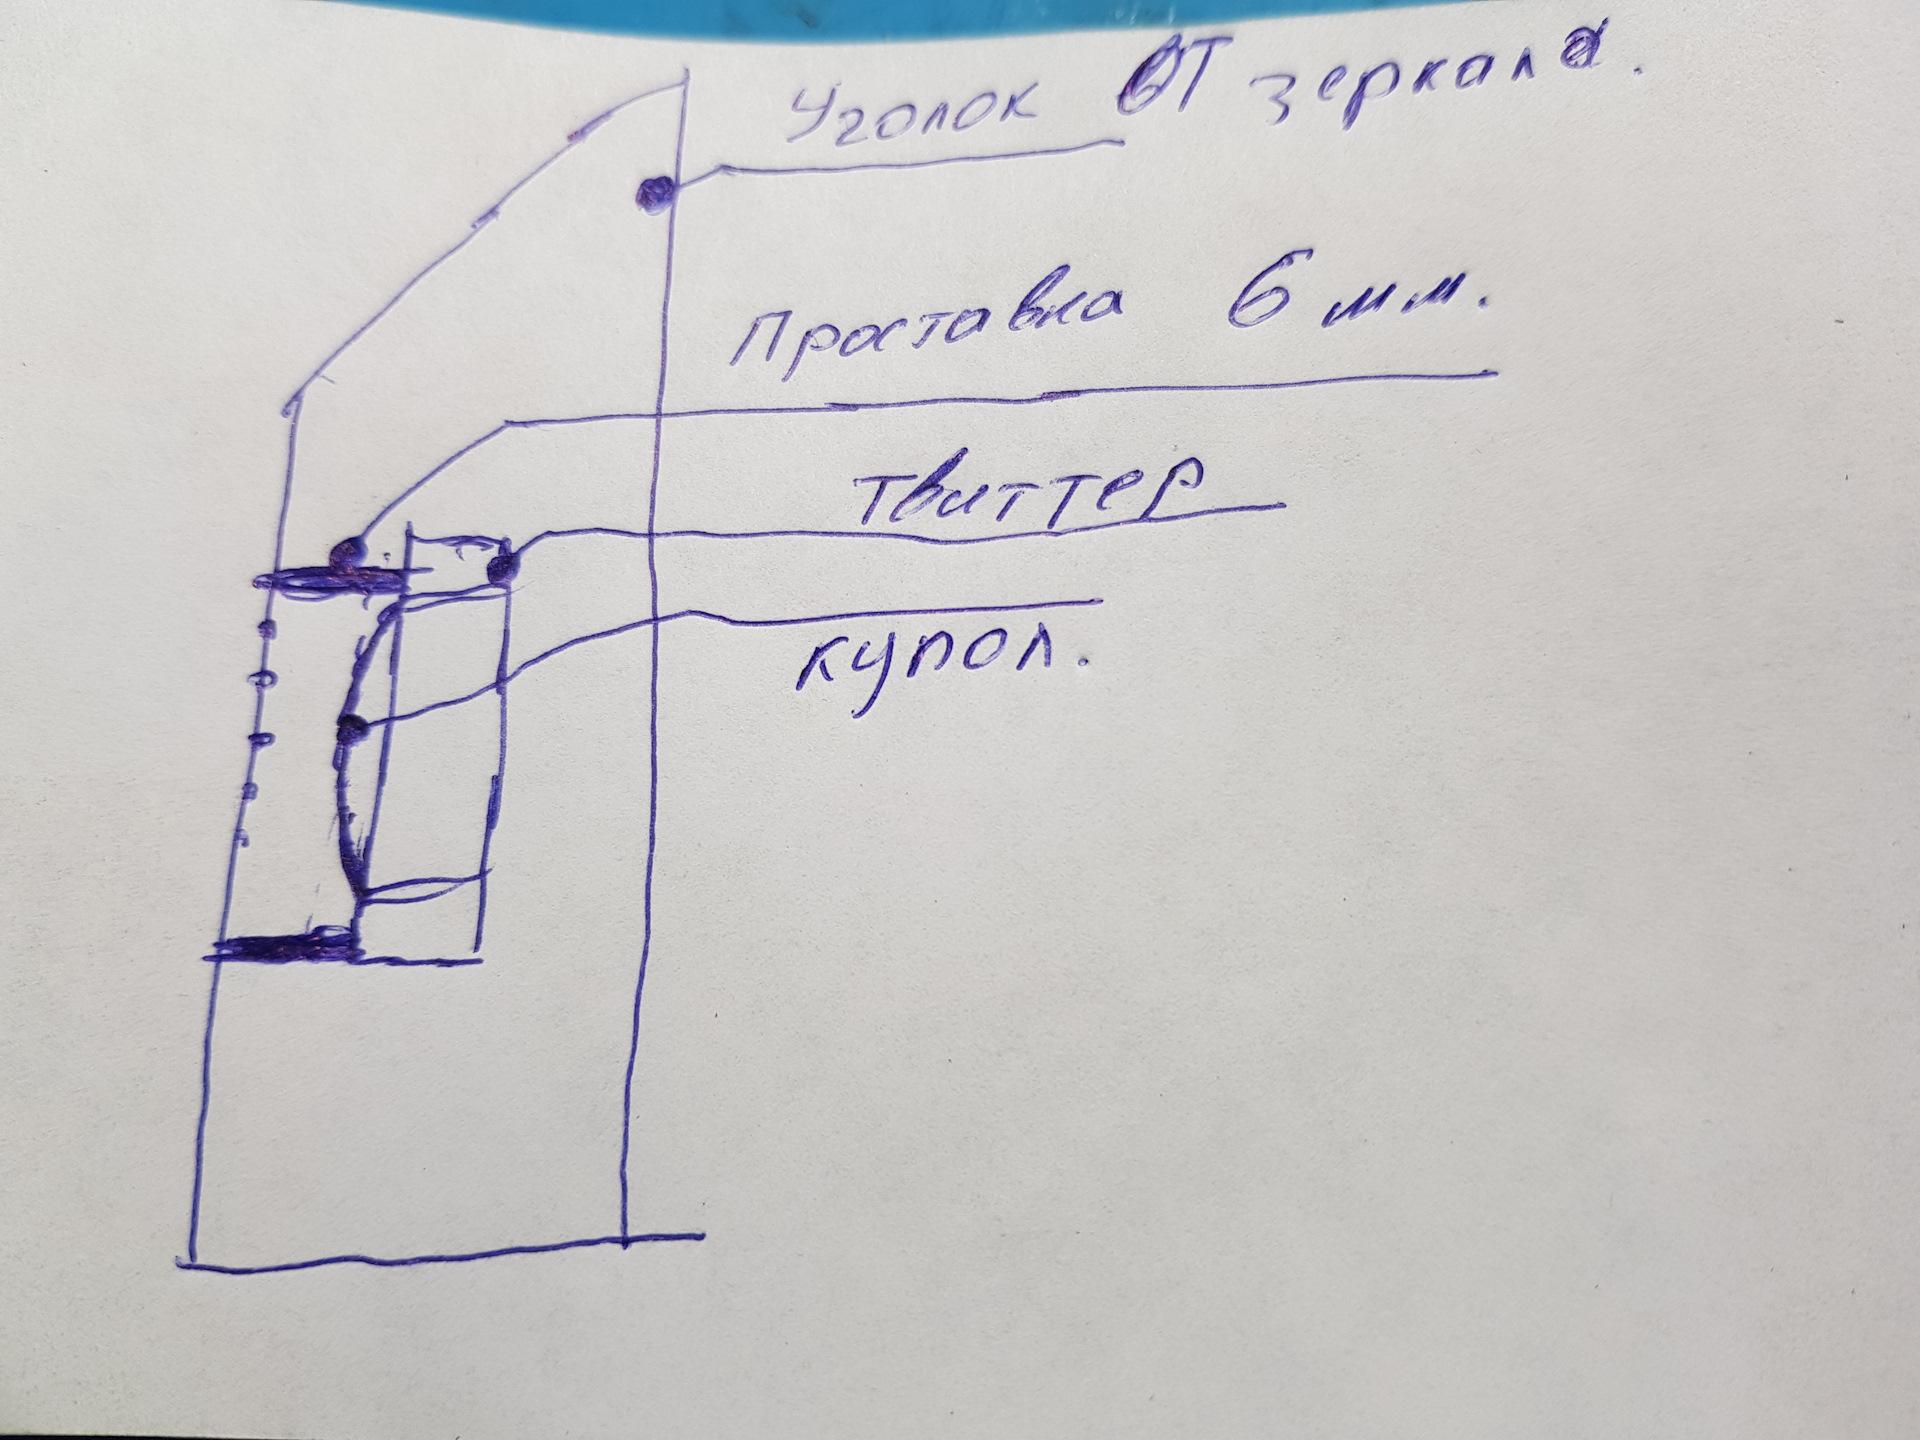 Уголок от зеркала.
Проставка 6 мм.
твиттер
купол.